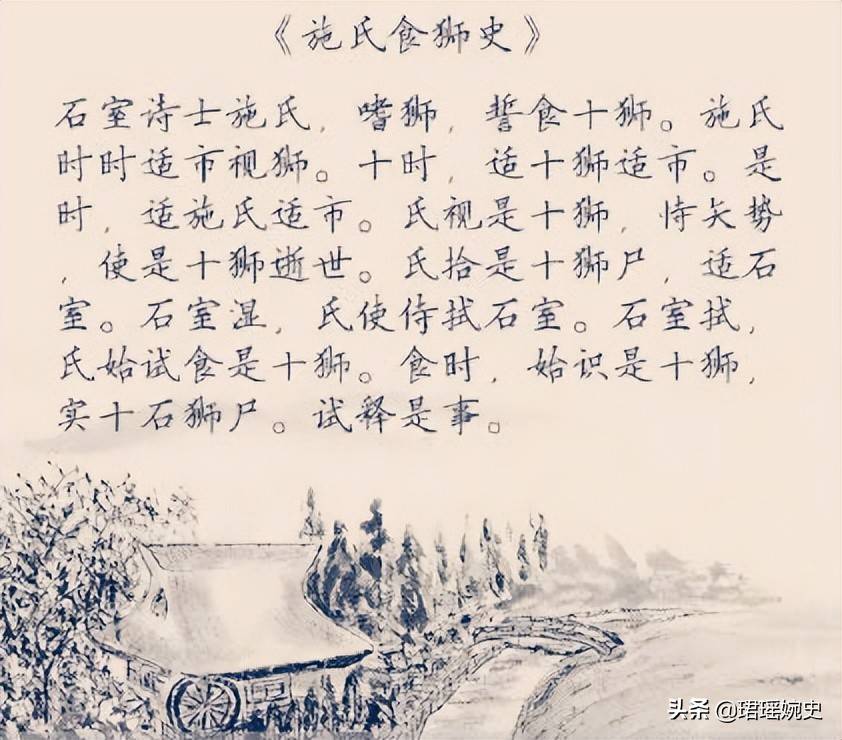 《施氏食狮史》
石室诗士施氏，嗜狮，誓食十狮。施氏
时时适市视狮。十时，适十狮适市。是
时，适施氏适市。氏视是十狮，恃矢势
，使是十狮逝世。氏拾是十狮尸，适石
室。石室湿，氏使侍拭石室。石室拭，
氏始试食是十狮。食时，始识是十狮，
实十石狮尸。试释是事。
头条 @珺瑶婉史